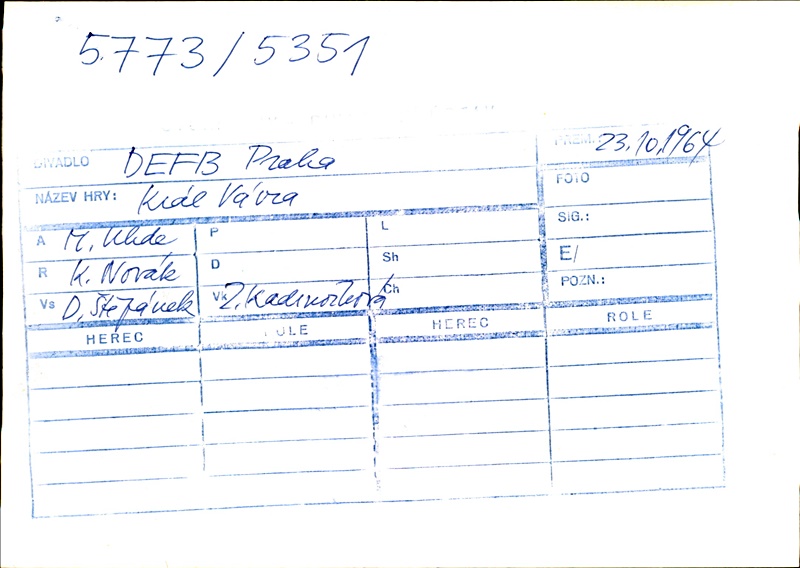 5773/5351
DIVADLO DEFB Praha
PREM. 23.10.1964
NÁZEV HRY: Král Vávra
FOTO
SIG.:
E/
POZN.:
A M. Uhde P L
R K. Novák D Sh
Vs D. Štěpánek Vk Z. Kadrnožková Ch
HEREC ROLE HEREC ROLE